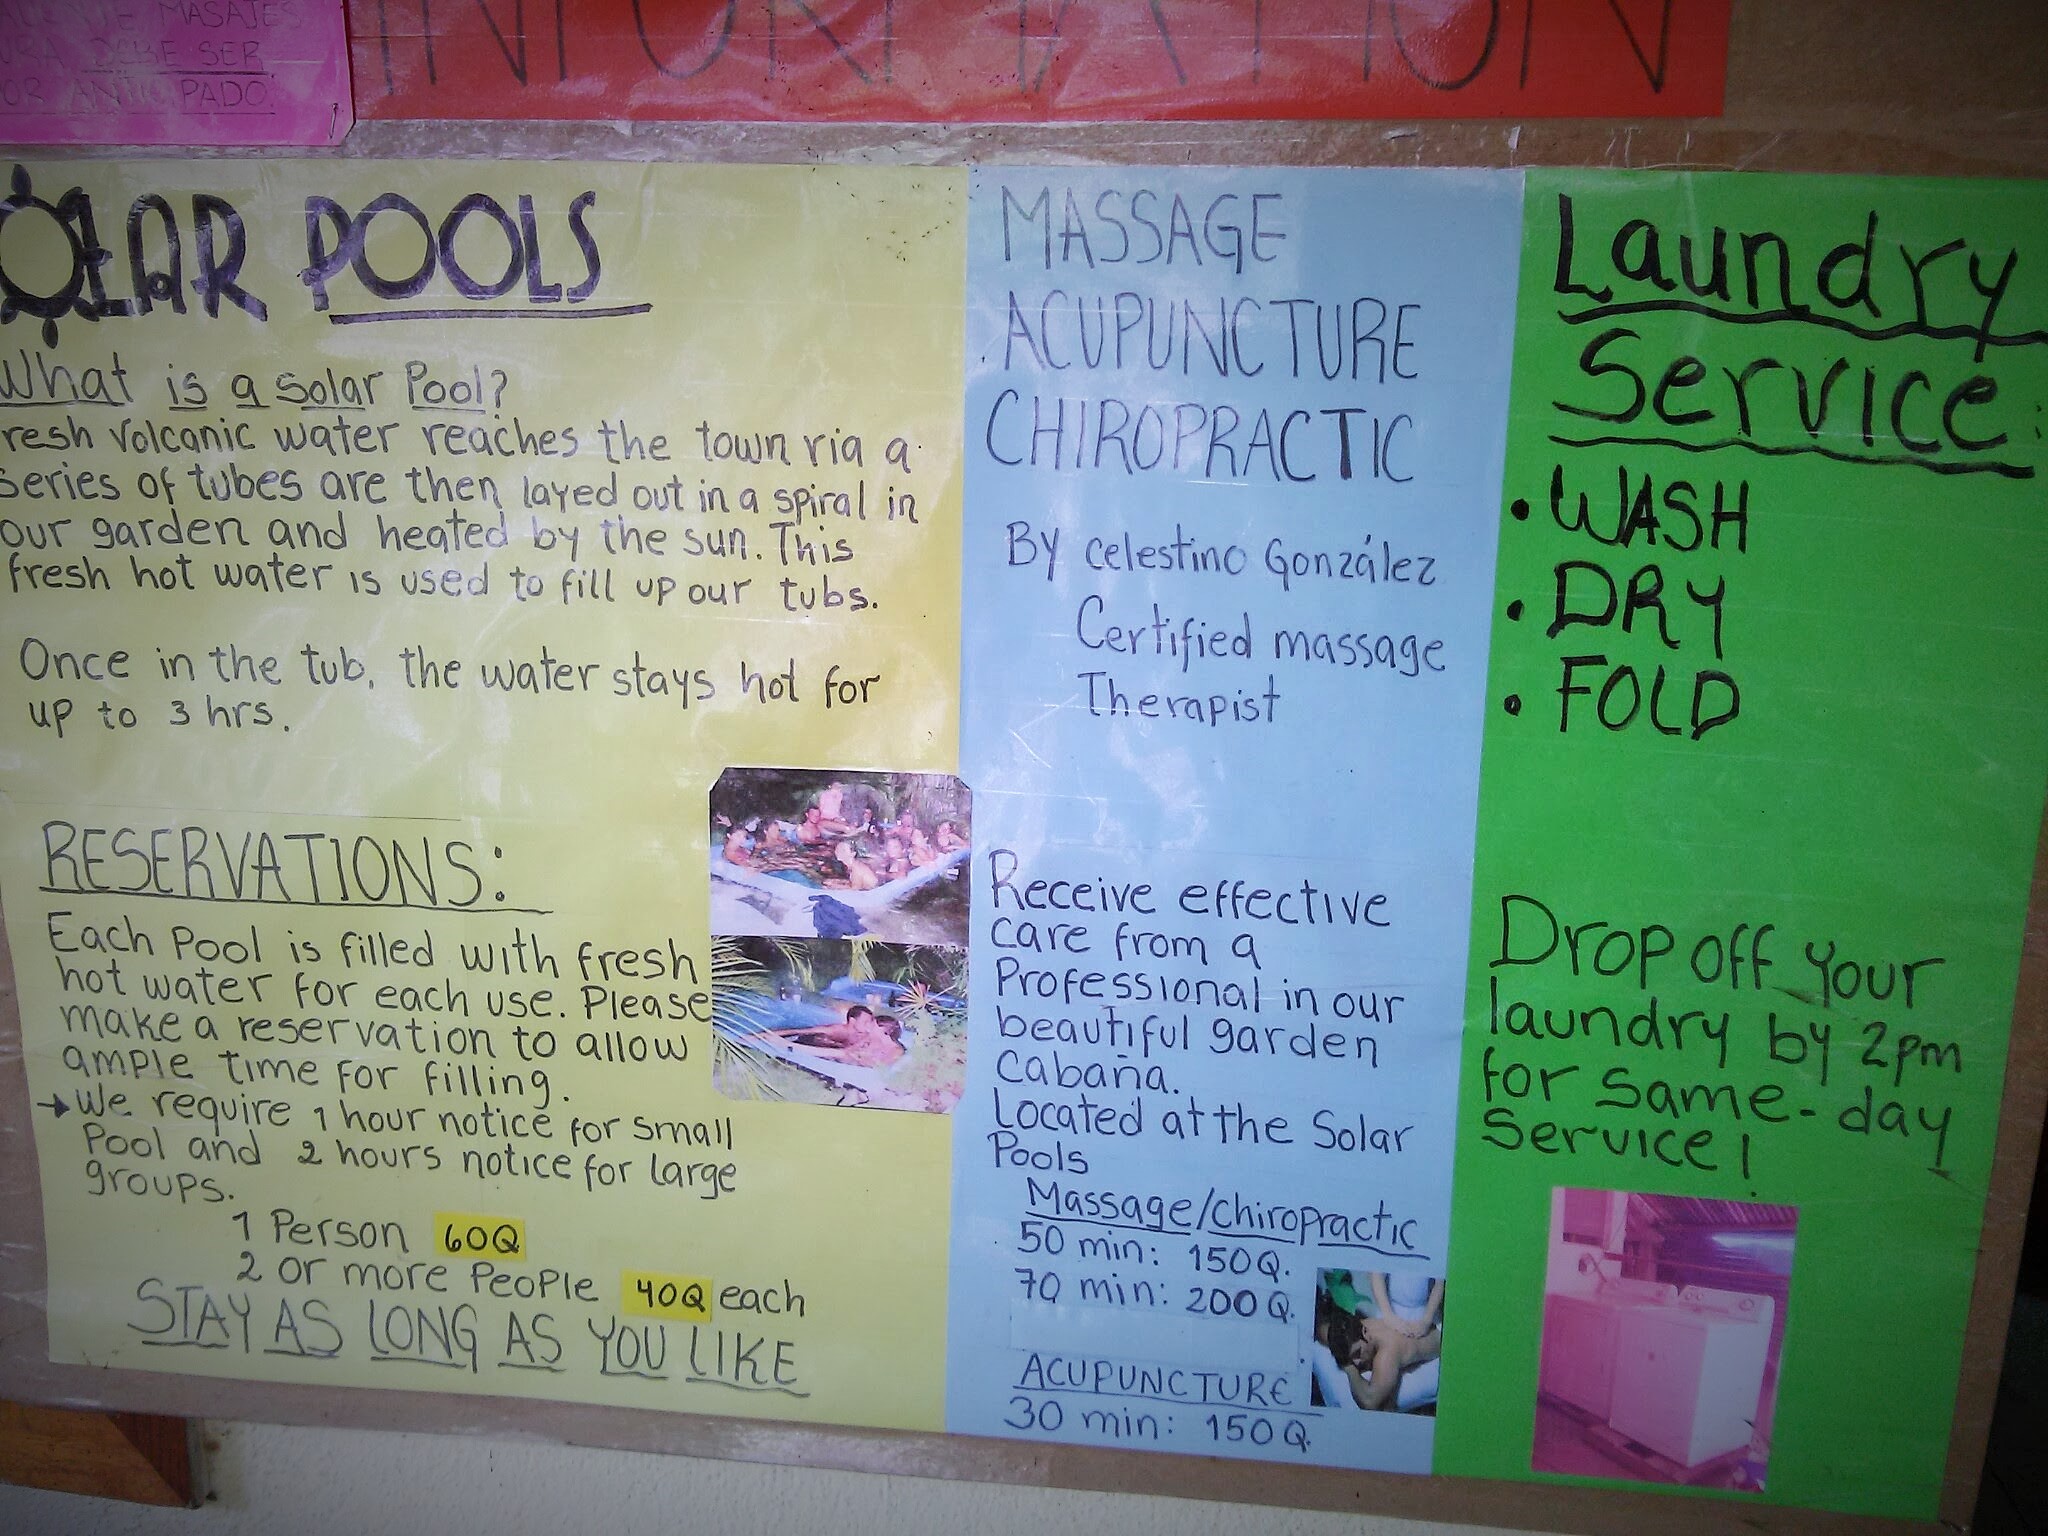 MASAJES
DEBE SER
POR ANTICIPADO.
INFORMATION
SOLAR POOLS
What is a Solar Pool?
resh volcanic water reaches the town via a
series of tubes are then layed out in a spiral in
our garden and heated by the sun. This
fresh hot water is used to fill up our tubs.
Once in the tub, the water stays hot for
up to 3 hrs.
RESERVATIONS:
Each Pool is filled with fresh
hot water for each use. Please
make a reservation to allow
ample time for filling.
→ We require 1 hour notice for small
Pool and 2 hours notice for large
groups.
1 Person 60Q
2 or more People 40Q each
STAY AS LONG AS YOU LIKE
MASSAGE
ACUPUNCTURE
CHIROPRACTIC
By Celestino González
Certified massage
Therapist
Receive effective
care from a
Professional in our
beautiful garden
cabaña.
Located at the Solar
Pools
Massage/Chiropractic
50 min: 150Q.
70 min: 200Q.
ACUPUNCTURE
30 min: 150Q.
Laundry
Service:
• WASH
• DRY
• FOLD
Drop off your
laundry by 2pm
for same-day
Service!